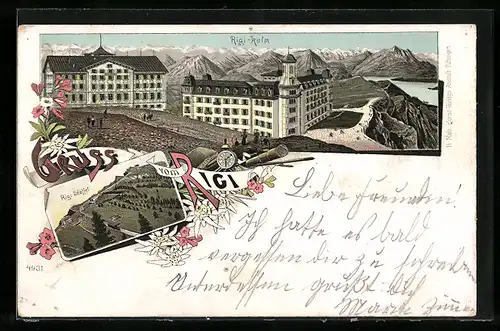 Rigi-Kulm
Gruss
vom
Rigi
Rigi Staffel
4931
Liebe Freundin!
Ich hatte es bald
vergessen dir zu schreiben
Unterdessen grüßt dich
Marie